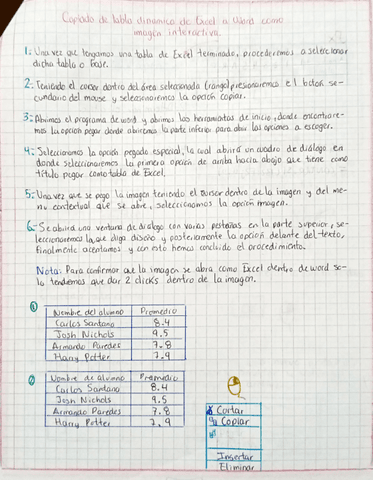 Copiado de tabla dinamica de Excel a Word como
imagen interactiva.
1: Una vez que tengamos una tabla de Excel terminado, procederemos a seleccionar
dicha tabla o fase.
2: Teniendo el cursor dentro del área seleccionada (rango) presionaremos el botón se-
cundario del mouse y seleccionaremos la opción copiar.
3: Abrimos el programa de word y abrimos las herramientas de inicio, donde encontrare-
mos la opción pegar donde abriremos la parte inferior para abrir las opciones a escoger.
4: Seleccionamos la opción pegado especial, la cual abrirá un cuadro de diálogo en
donde seleccionaremos la primera opción de arriba hacia abajo que tiene como
título pegar como tabla de Excel.
5: Una vez que se pego la imagen teniendo el cursor dentro de la imagen y del me-
nu contextual que se abre, seleccionamos la opción imagen.
6: Se abrirá una ventana de dialogo con varias pestañas en la parte superior, se-
leccionaremos la que diga diseño y posteriormente la opción delante del texto,
finalmente aceptamos y con esto hemos concluido el procedimiento.
Nota: Para confirmar que la imagen se abra como Excel dentro de word so-
lo tendemos que dar 2 clicks dentro de la imagen.
1
Nombre del alumno Promedio
Carlos Santana 8.4
Josh Nichols 9.5
Armando Paredes 7.8
Harry Potter 7.9
2
Nombre de alumno Promedio
Carlos Santana 8.4
Josh Nichols 9.5
Armando Paredes 7.8
Harry Potter 7.9
Cortar
Copiar
Insertar
Eliminar